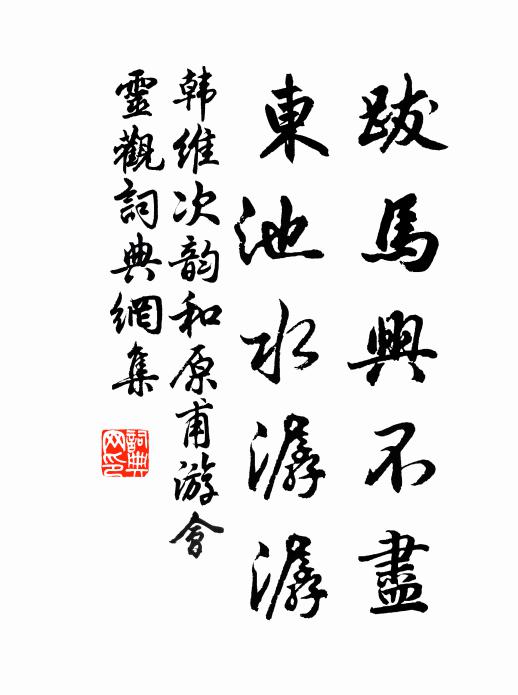 跋馬興不盡
東池水潺潺
韩維次韵和原甫游會
靈觀詞典網集
詞典網印